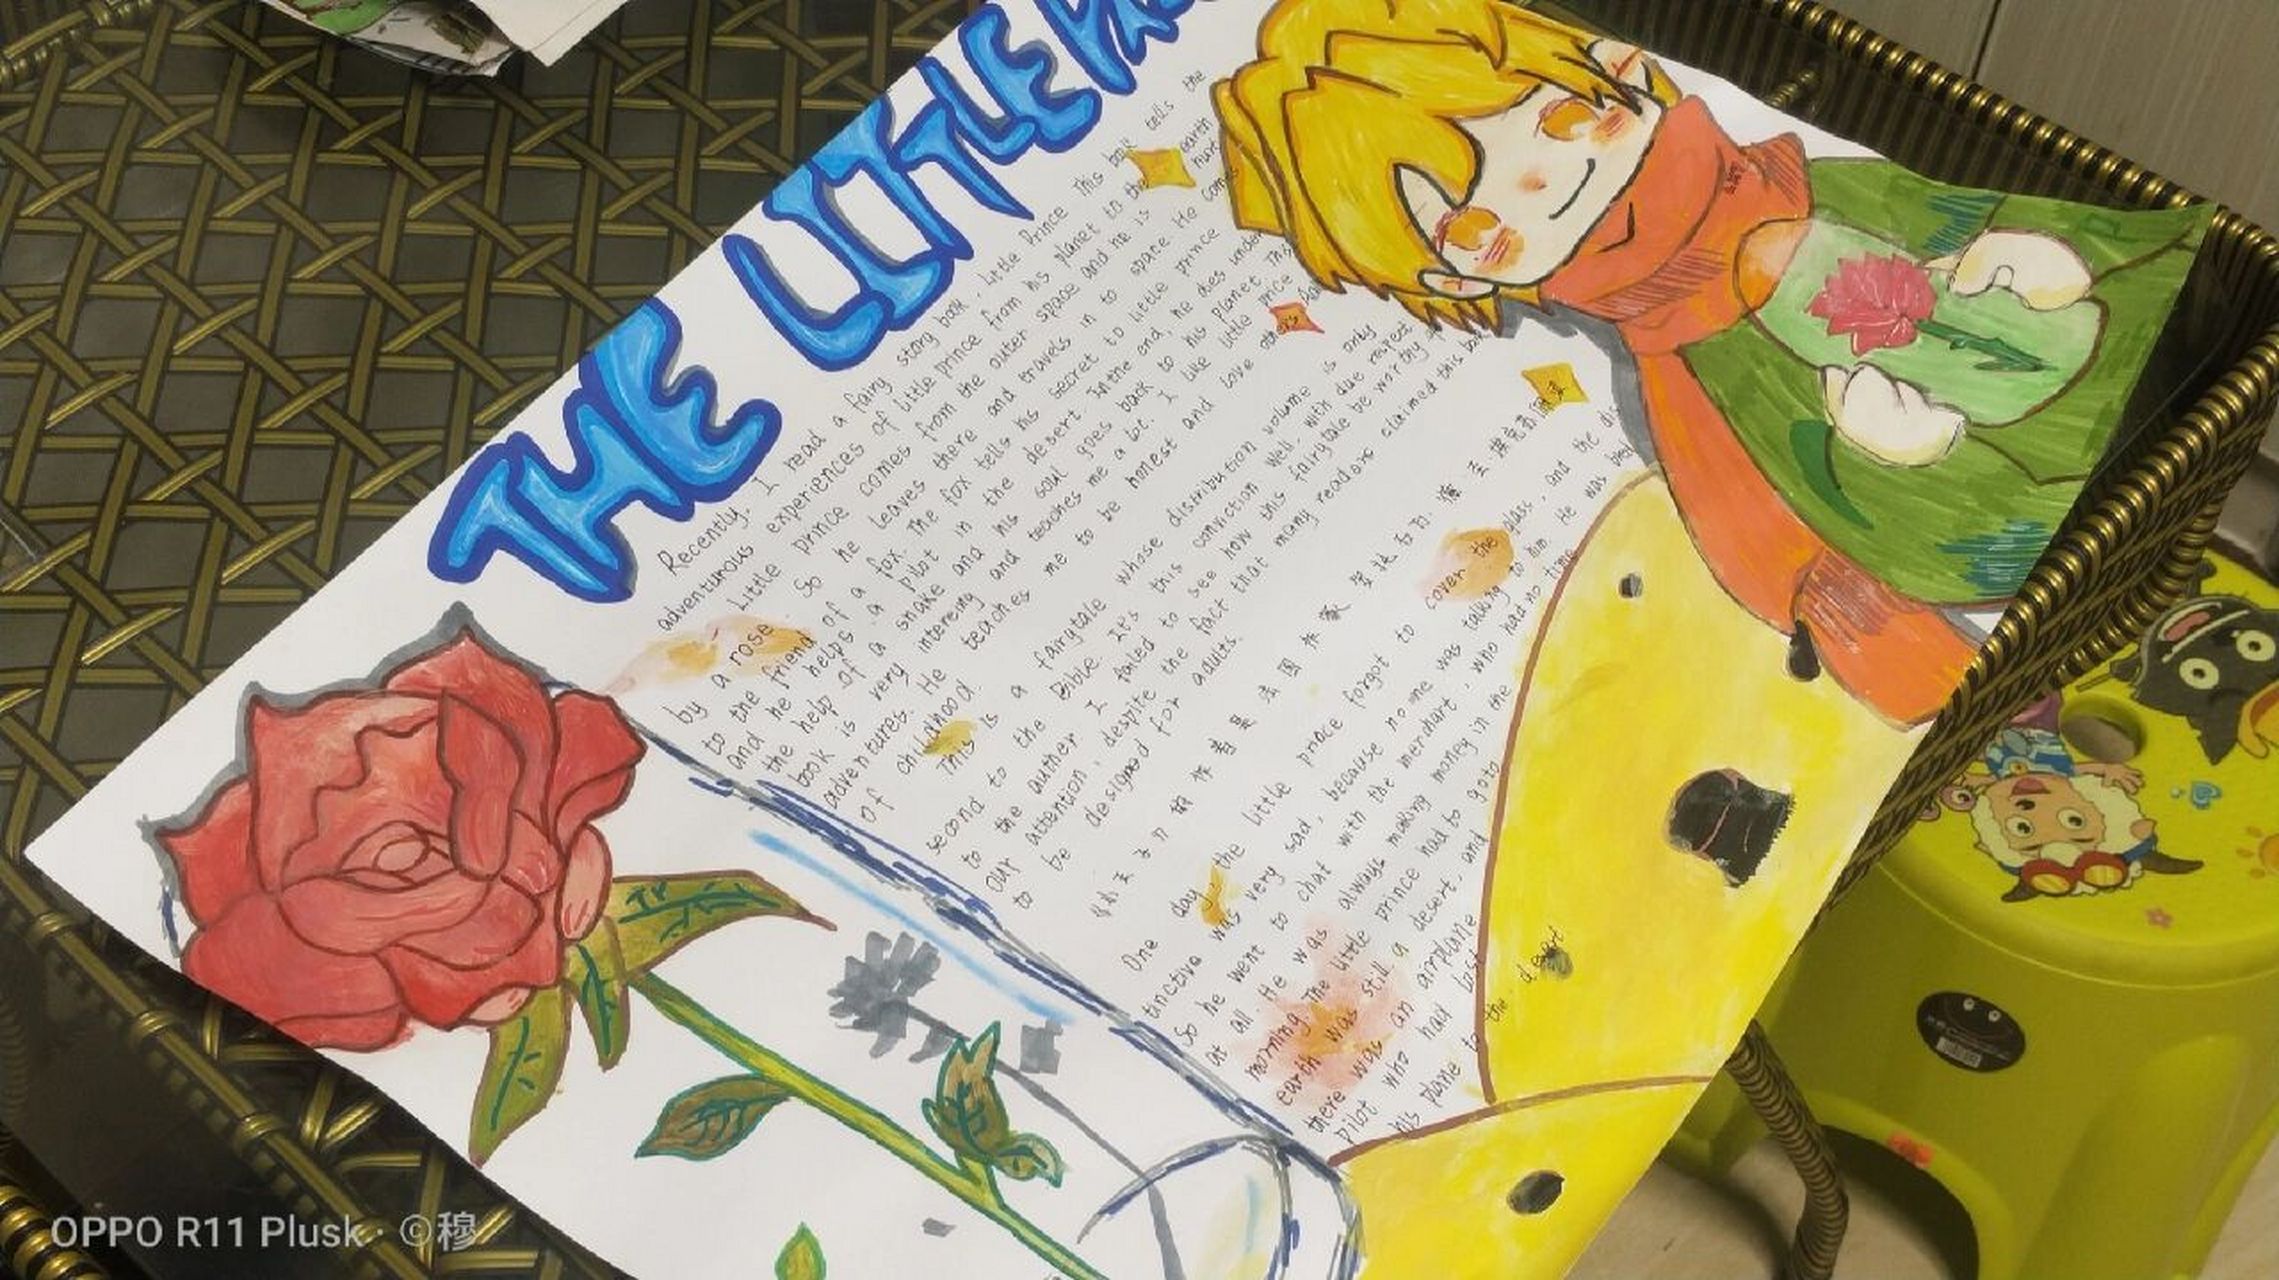 THE LITTLE
Recently, I read a fairy story book, Little Prince This book tells the
adventurous experiences of little prince from his planet to the earth
Little prince comes from the outer space and he is hurt
by a rose. So he leaves there and travels in to space. He comes
to the friend of a fox. The fox tells his secret to little prince
and he helps a pilot in the desert In the end, he dies under
the help of a snake and his soul goes back to his planet This
book is very intereing and teaches me a lot. I like little price
adventures. He teaches me to be honest and love others
of childhood.
This is a fairytale whose distribution volume is only
second to the Bible. It's this conviction Well, with due respect
to the author I failed to see how this fairytale be worthy
our attention, despite the fact that many readers claimed this book
to be designed for adults.
小王子的作者是法国作家安托万·德·圣
One day, the little prince forgot to cover the glass, and the dis
tinctive was very sad, because no one was talking to him. He was
So he went to chat with the merchart, who had no time
at all. He was always making money in the
morning The little prince had to goto
earth was still a desert, and
there was an airplane
pilot who had last
his plane to the desert
OPPO R11 Plusk · ©穆